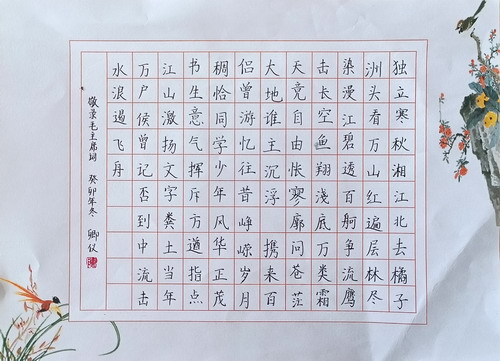 独立寒秋湘江北去橘子
洲头看万山红遍层林尽
染漫江碧透百舸争流鹰
击长空鱼翔浅底万类霜
天竞自由怅寥廓问苍茫
大地谁主沉浮 携来百
侣曾游忆往昔峥嵘岁月
稠恰同学少年风华正茂
书生意气挥斥方遒指点
江山激扬文字粪土当年
万户侯曾记否到中流击
水浪遏飞舟
敬录毛主席词 癸卯年冬 卿仪